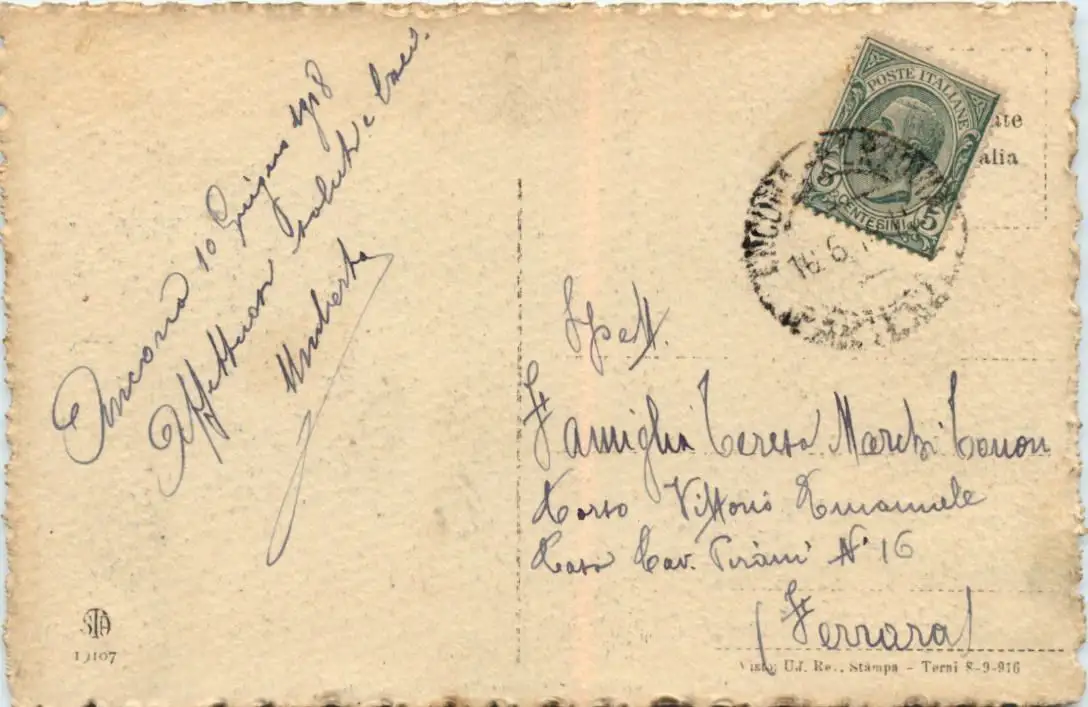 Ancona 10 Giugno 1918
Affettuosi saluti e baci.
Umberto
POSTE ITALIANE
5 CENTESIMI 5
alia
10.6.
Spett.
Famiglia Teresa Marchi
Corso Vittorio Emanuele
Casa Cav. Pirani N° 16
(Ferrara)
STA
19107
Visto: U.J. Rev. Stampa - Terni 8-9-916